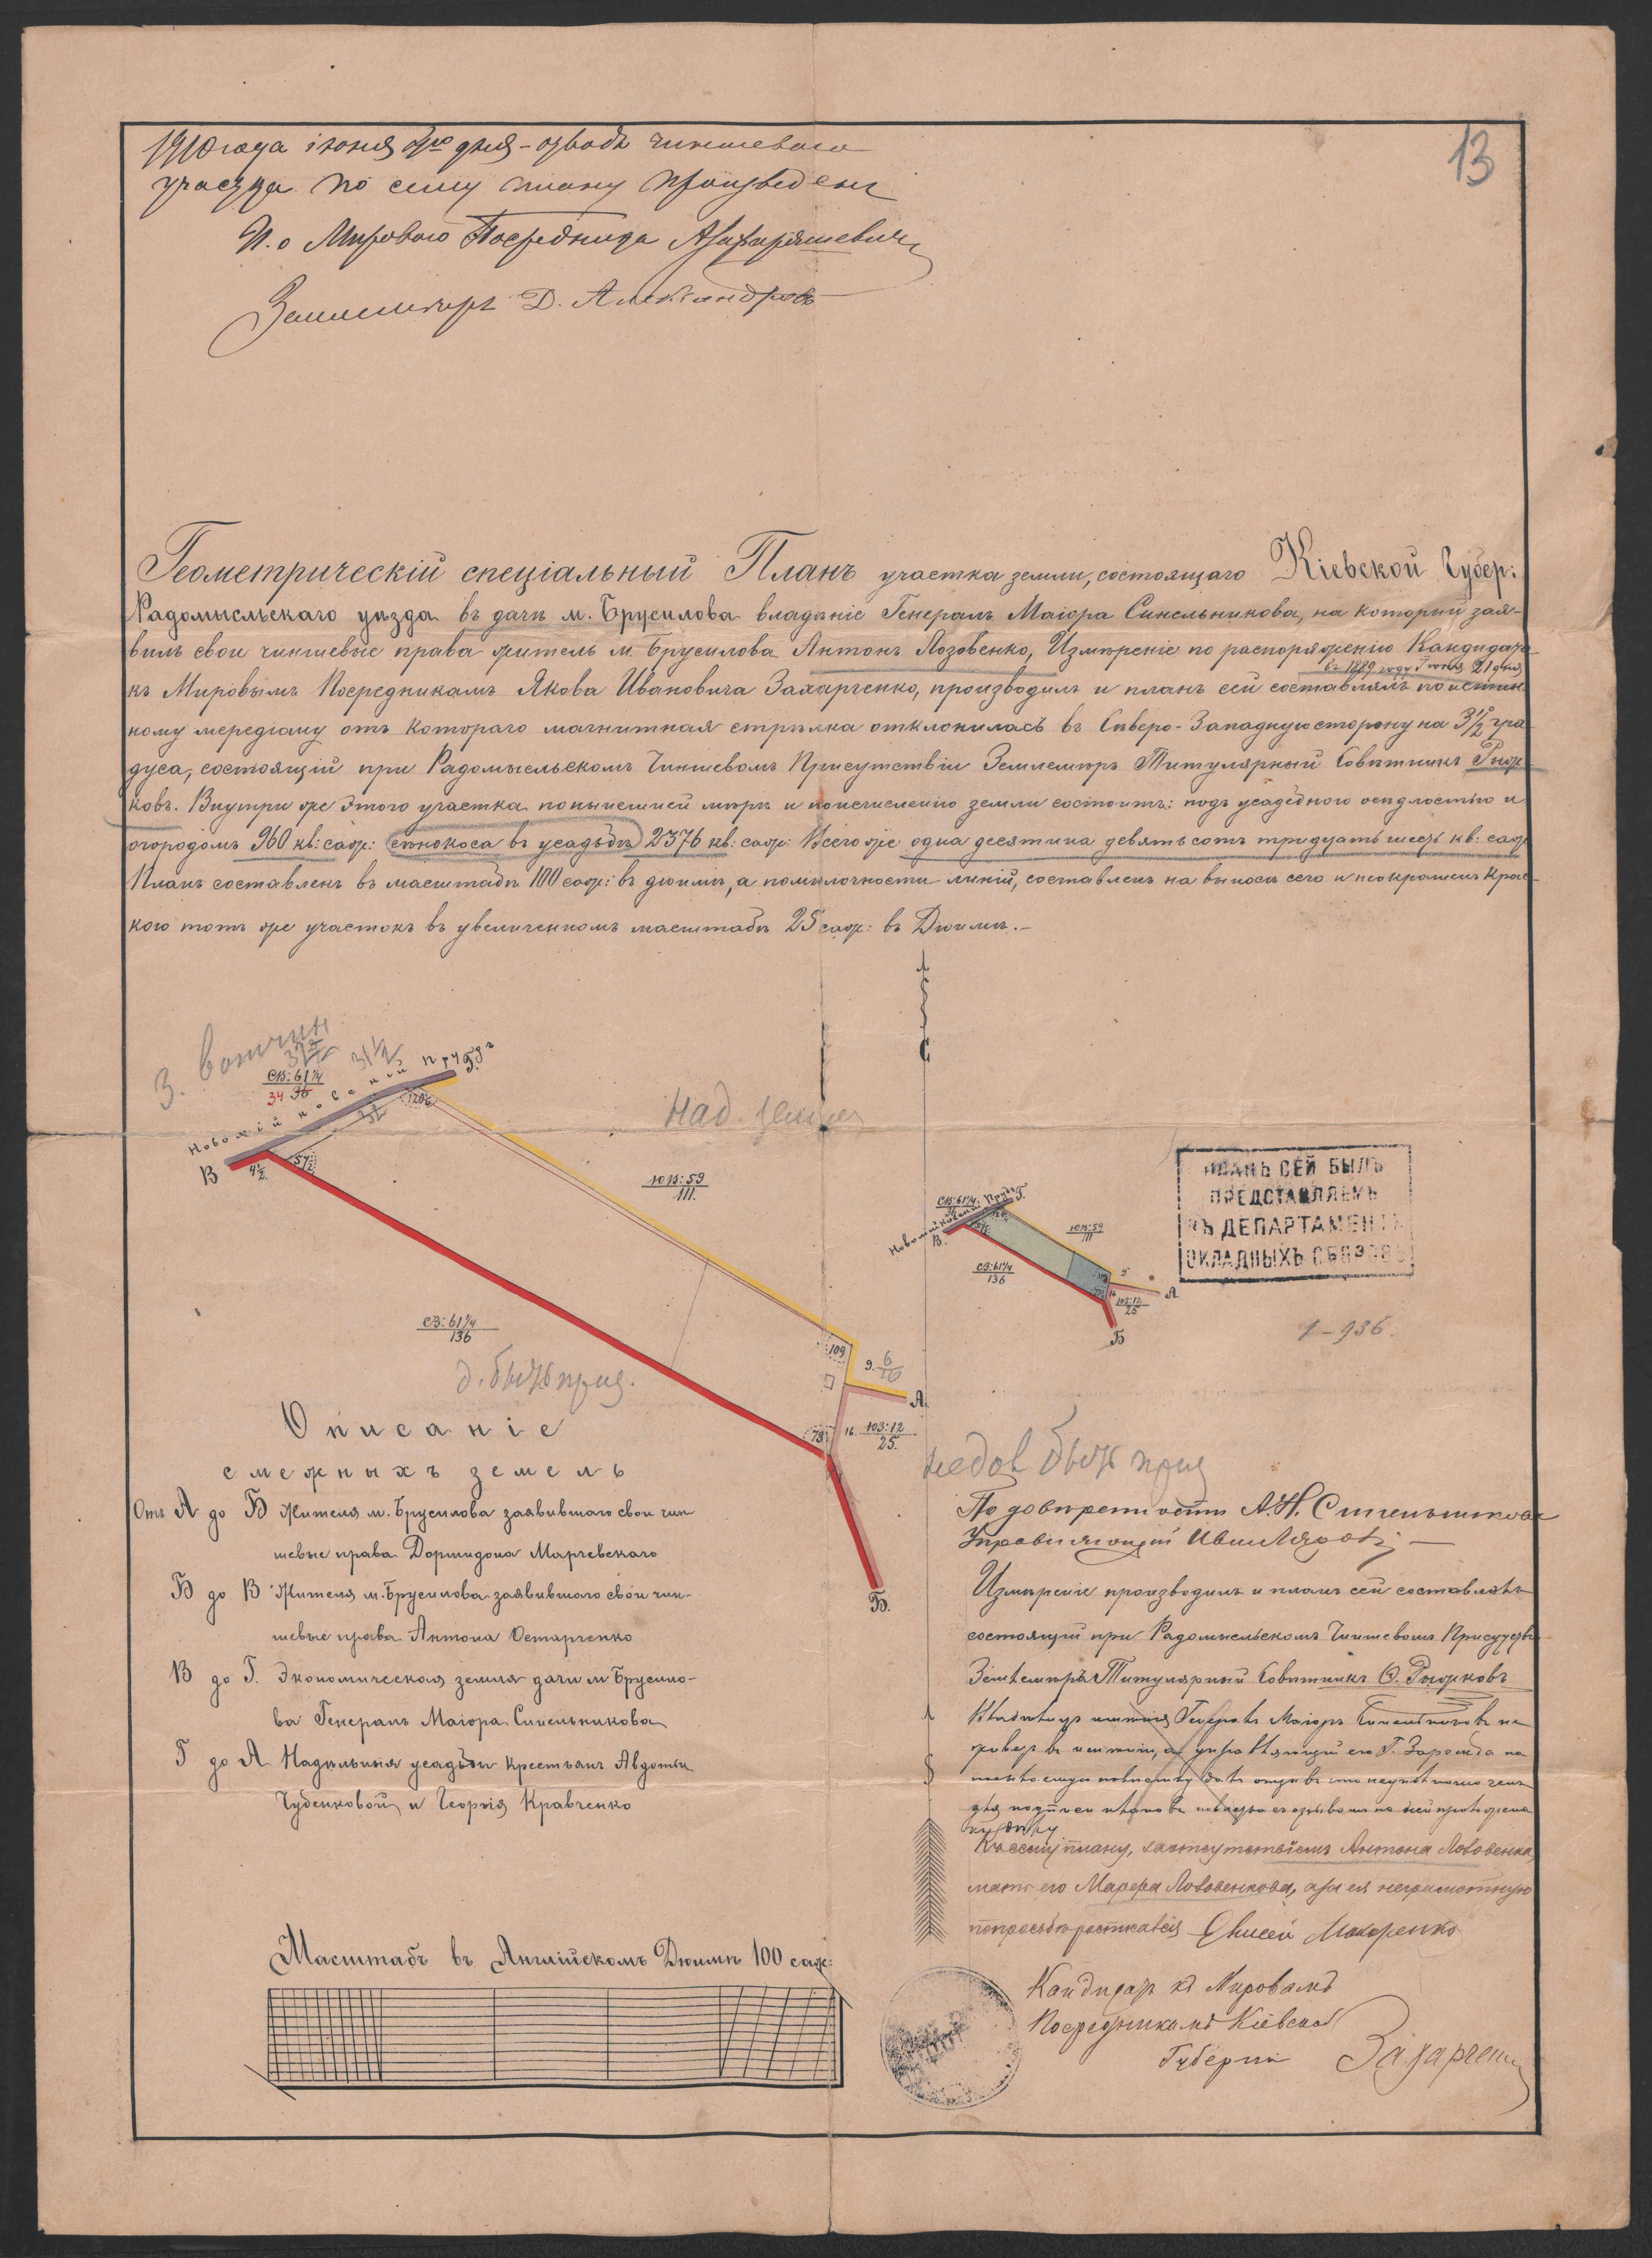 13
1910 года іюня дня - отводъ чиншеваго
участка по сему плану произведенъ
И. о Мирового Посредника
Землемѣръ Д. Александровъ
Геометрическій спеціальный Планъ участка земли, состоящаго Кіевской Губер:
Радомысльскаго уѣзда въ дачѣ м. Брусилова владѣніе Генералъ Маіора Синельникова, на который зая-
вилъ свои чиншевые права житель м. Брусилова Антонъ Лозовенко, Измѣреніе по распоряженію Кандидата
въ 1889 году Іюня 21 дня
къ Мировымъ Посредникамъ Якова Ивановича Захарченко, производилъ и планъ сей составлялъ по истин-
ному мередіану отъ котораго магнитная стрѣлка отклонилась въ Сѣверо-Западную сторону на 3 1/2 гра-
дуса, состоящій при Радомысльскомъ Чиншевомъ Присутствіи Землемѣръ Титулярный Совѣтникъ Рыж-
ковъ. Внутри же этого участка по нынешней мѣрѣ и по исчисленію земли состоитъ: подъ усадебного осѣдлостью и
огородомъ 960 кв: саж: сѣнокоса въ усадьбѣ 2376 кв: саж: Всего же одна десятина девятьсотъ тридцать шесть кв: саж
Планъ составленъ въ масштабѣ 100 саж: въ дюимѣ, а по мѣлочности линій, составленъ на выноси сего и неокрашенъ крас-
кою тотъ же участокъ въ увеличенномъ масштабѣ 25 саж: въ Дюимѣ.-
СВ: 61 1/4
34 36
Новохійковскій Прудъ
Г.
В
4 1/2
57 1/2
Над. земля
ЮВ: 59
111.
СЗ: 61 1/4
136
109
9.
А
78
16.
ЮЗ: 12
25.
Б.
СВ: 61 1/4
Прудъ
Г.
В.
ЮВ: 59
111
СЗ: 61 1/4
136
9
А
16
ЮЗ: 12
25
Б
ПЛАНЪ СЕЙ БЫЛЪ
ПРЕДСТАВЛЯЕМЪ
ВЪ ДЕПАРТАМЕНТЪ
ОКЛАДНЫХЪ СБОРОВЪ
1-936.
Описаніе
смежныхъ земель
Отъ А до Б Жителя м. Брусилова заявившаго свои чин
шевые права Дормидона Марчевскаго
Б до В Жителя м. Брусилова заявившаго свои чин-
шевые права Антона Остапченко
В до Г. Экономическая земля дачи м Брусило-
ва Генералъ Маіора Синельникова
Г до А Надѣльныя усадьбы крестьянъ Авдотьи
Чубенковой и Георгія Кравченко
По довѣренности А. Н. Синельникова
Управляющій Иванъ
Измѣреніе производилъ и планъ сей составлялъ
состоящій при Радомысльскомъ Чиншевомъ Присутствіи
Землемѣръ Титулярный Совѣтникъ Ѳ. Рыжковъ
Владѣлецъ имѣнія Генералъ Маіоръ Синельниковъ не
живетъ въ имѣніи, а управляющій его Г. Заремба на
для подписи плановъ
Къ сему плану, за отсутствіемъ Антона Лозовенка,
мать его Марфа Лозовенкова, а за ея неграмотную
по просьбѣ росписался Евисей Макаренко
Кандидатъ къ Мировымъ
Посредникамъ Кіевской
Губерніи Захарченко
Масштабъ въ Англійскомъ Дюимѣ 100 саж: